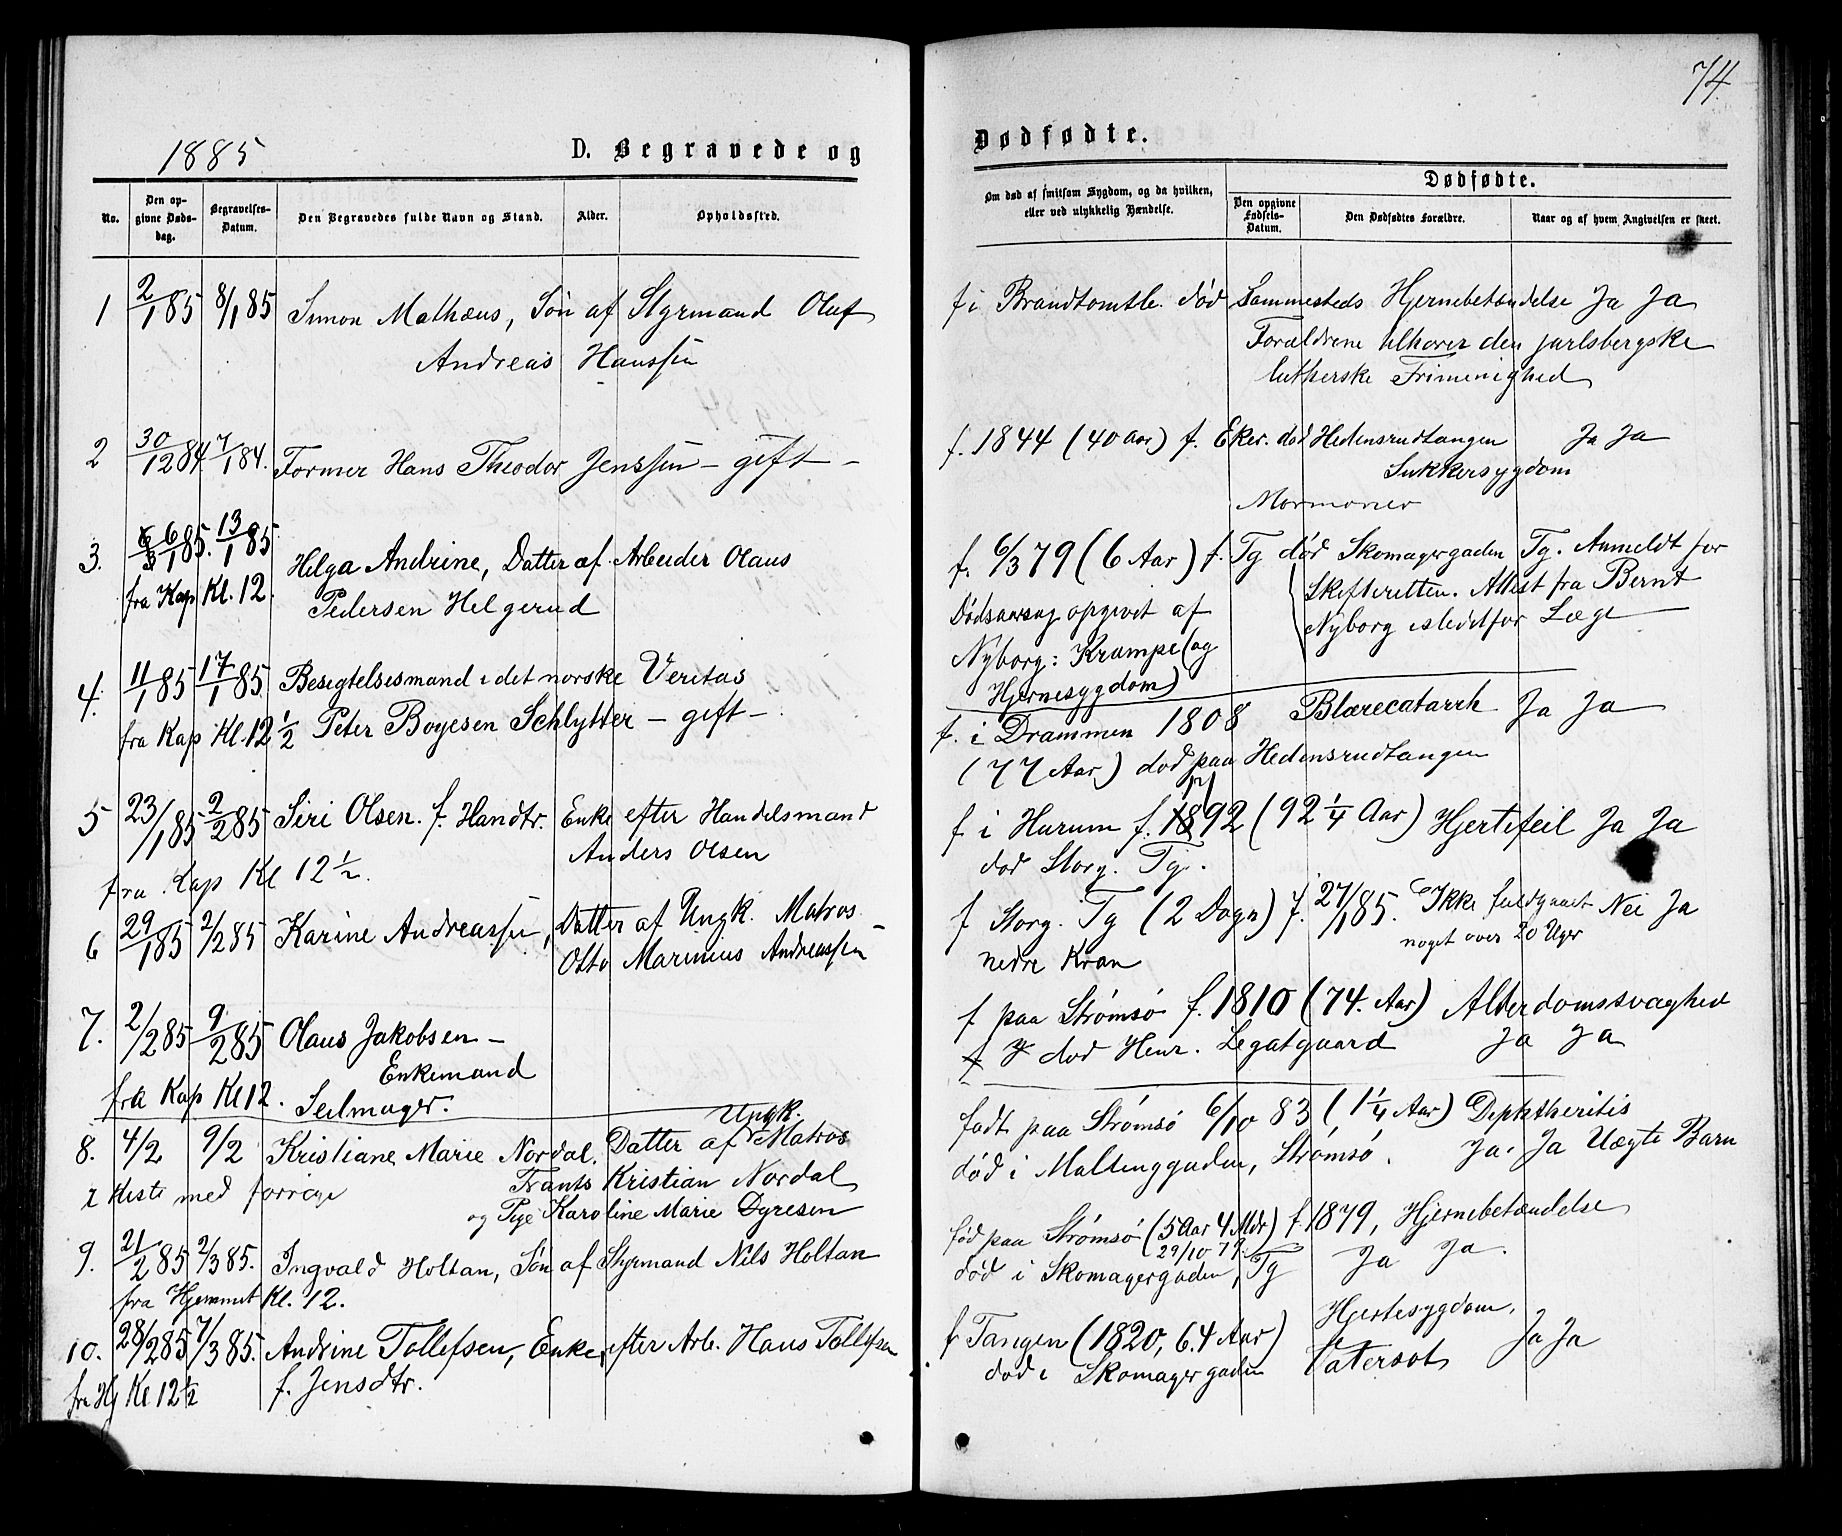 74
1885
D. Begravede og
Dødfødte.
No.
Den opgivne Døds-
dag.
Begravelses-
Datum.
Den Begravedes fulde Navn og Stand.
Alder.
Opholdssted.
Om død af smitsom Sygdom, og da hvilken,
eller ved ulykkelig Hændelse.
Dødfødte.
Den opgivne
Fødsels-
Datum.
Den Dødfødtes Forældre.
Naar og af hvem Angivelsen er skeet.
1 2/1 85 8/1 85 Simon Mathæus, Søn af Styrmand Oluf
Andreas Hanssen
f i Brandtomtle. død Sammesteds Hjernebetændelse Ja Ja
Forældrene tilhører den jarlsbergske
lutherske Frimenighed
2 30/12 84 7/1 84. Former Hans Theodor Jenssen – gift –
f. 1844 (40 aar) f. Eker. død Hedensrudtangen Ja Ja
Sukkersygdom
Mormoner
3. 6/1 85. 13/1 85 Helga Andrine, Datter af Arbeider Olaus
fra Kap Kl. 12. Pedersen Helgerud
f. 6/3 79 (6 Aar) f. Tg død Skomagergaden Tg. Anmeldt for
Skifteretten. Attest fra Bernt
Dødsaarsag opgivet af Nyborg istedetfor Læge
Nyborg: Krampe (og
Hjernesygdom)
4. 11/1 85 17/1 85 Besigtelsesmand i det norske Veritas
fra Kap Kl. 12 1/2 Peter Boyesen Schlytter – gift –
f. i Drammen 1808 Blærecatarrh Ja Ja
(77 Aar) død paa Hedensrudtangen
5 23/1 85 2/2 85 Siri Olsen. f. Handtr. Enke efter Handelsmand
Anders Olsen
fra Kap Kl 12 1/2.
f i Hurum f. 1792 (92 1/4 Aar) Hjertefeil Ja Ja
død Storg. Tg.
6 29/1 85 2/2 85 Karine Andreassen, Datter af Ungk. Matros
Otto Marinius Andreassen
f Storg. Tg (2 Døgn) f. 27/1 85. Ikke fuldgaaet Nei Ja
noget over 20 Uger
nedre Kran
7. 2/2 85 9/2 85 Olaus Jakobsen –
Enkemand
fra Kap Kl 12. Seilmager.
f paa Strømsø f. 1810 (74. Aar) Alderdomssvaghed
død Henr. Legatgaard Ja Ja
8. 4/2 9/2 Kristiane Marie Nordal. Datter af Ungk. Matros
i Kiste med forrige Frants Kristian Nordal
og Pige Karoline Marie Dyresen
født paa Strømsø 6/10 83 (1 1/4 Aar) Dephtheritis
død i Maltenggaden, Strømsø. Ja. Ja Uægte Barn
9. 21/2 85 2/3 85. Ingvald Holtan, Søn af Styrmand Nils Holtan
fra Hjemmet Kl. 12.
fød paa Strømsø (5 Aar 4 Mdr) f 1879, Hjernebetændelse
29/10 79.
død i Skomagergaden, Tg Ja Ja.
10. 28/2 85 7/3 85. Andrine Tollefsen, Enke efter Arb. Hans Tollefsen
fra Hj Kl 12 1/2 f. Jensdtr.
f Tangen (1820, 64 Aar) Hjertesygdom, Ja Ja
død i Skomagergaden Vatersot